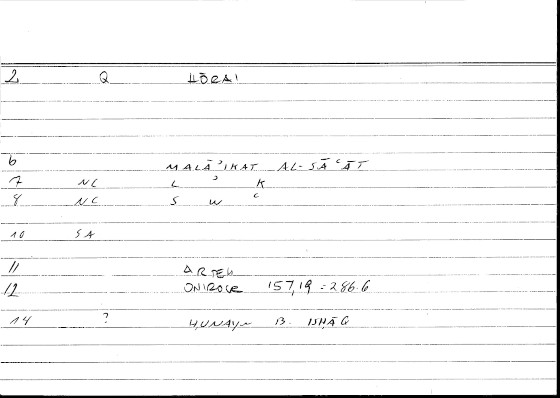 2 Q HŌRAI
6 MALĀʾIKAT AL-SĀʿĀT
7 NC L ʾ K
8 NC S W ʿ
10 SA
11 ARTEM
12 ONIROCR 157,19 = 286.6
14 ? ḤUNAYN B. ISḤĀQ